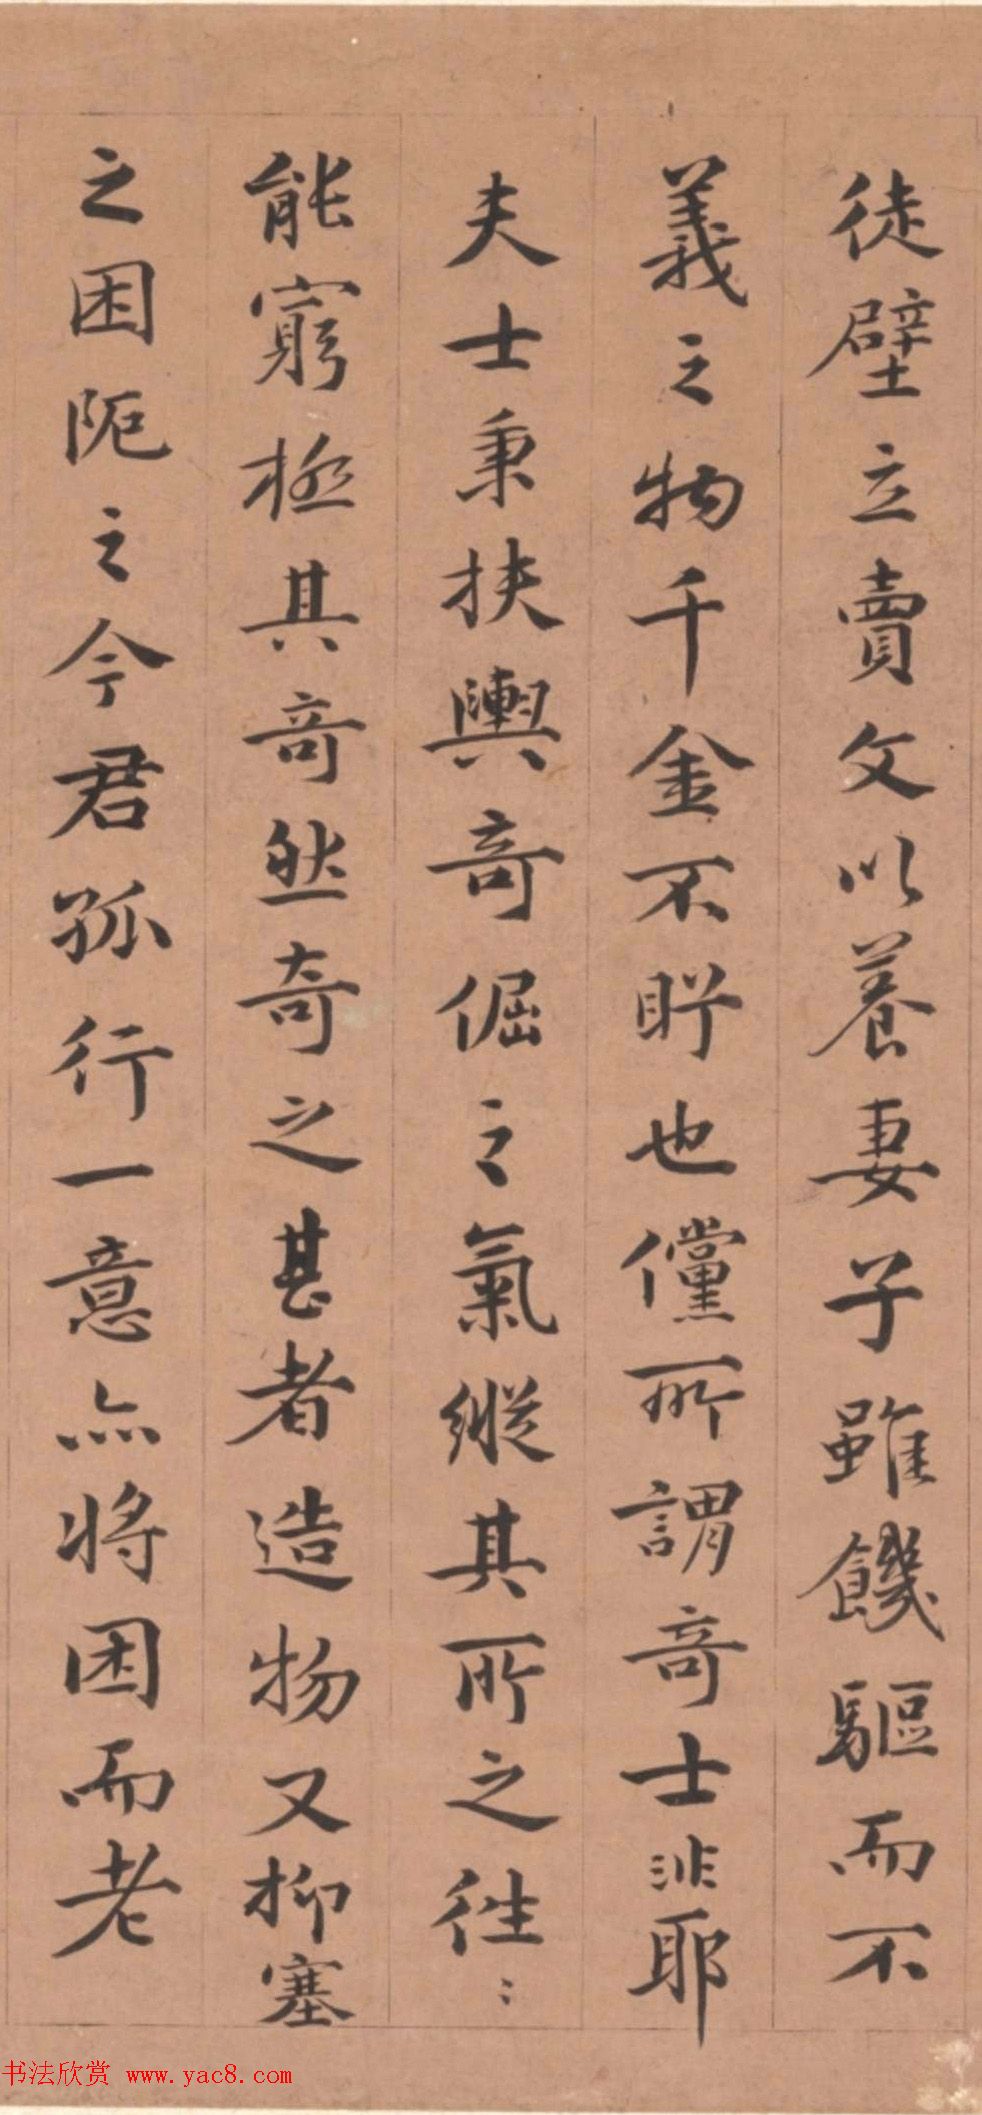 徒壁立賣文以養妻子雖饑驅而不
義之物千金不盻也儻所謂奇士非耶
夫士秉扶輿奇倔之氣縱其所之往〻
能窮極其奇然奇之甚者造物又抑塞
之困阨之今君孤行一意亦將困而老
书法欣赏 www.yac8.com